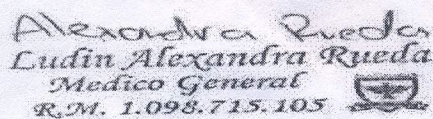 Alexandra Rueda
Ludin Alexandra Rueda
Medico General
R.M. 1.098.715.105